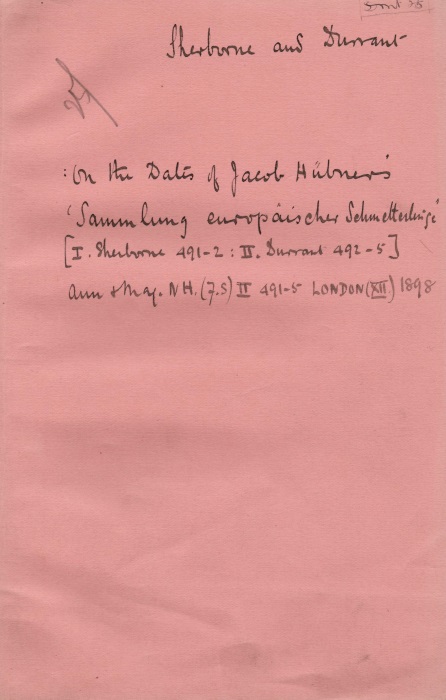 Sherborne and Durrant
:On the Dates of Jacob Hübner's
'Sammlung europäischer Schmetterlinge'
[I. Sherborne 491-2 : II. Durrant 492-5]
Ann & Mag. NH. (7.S) II 491-5 LONDON (XII.) 1898